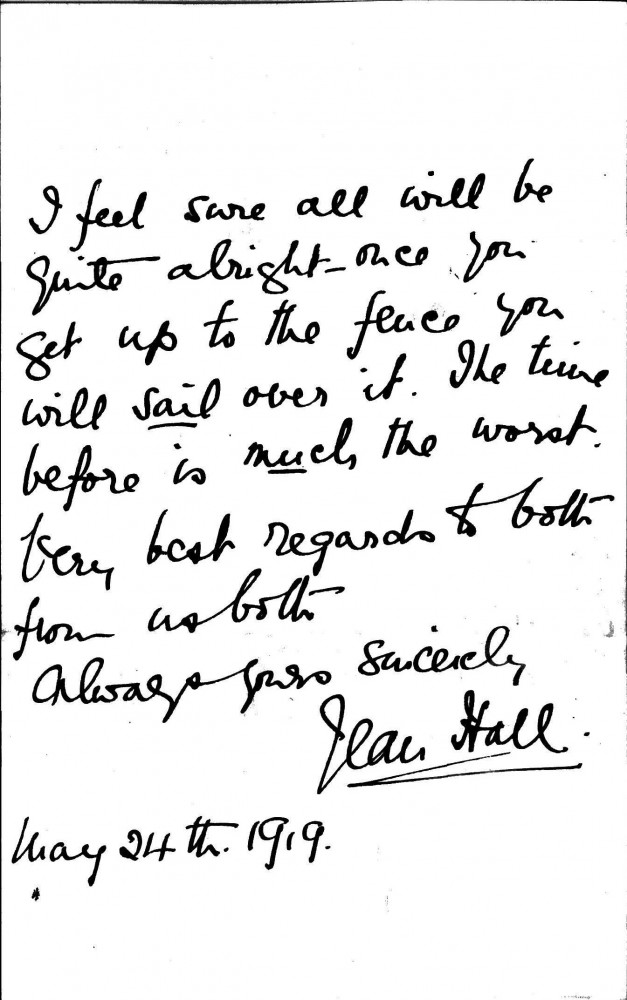 I feel sure all will be
quite alright - once you
get up to the fence you
will sail over it. The time
before is much the worst.
Very best regards to both
from us both
Always yours sincerely
Jean Hall.
May 24th. 1919.